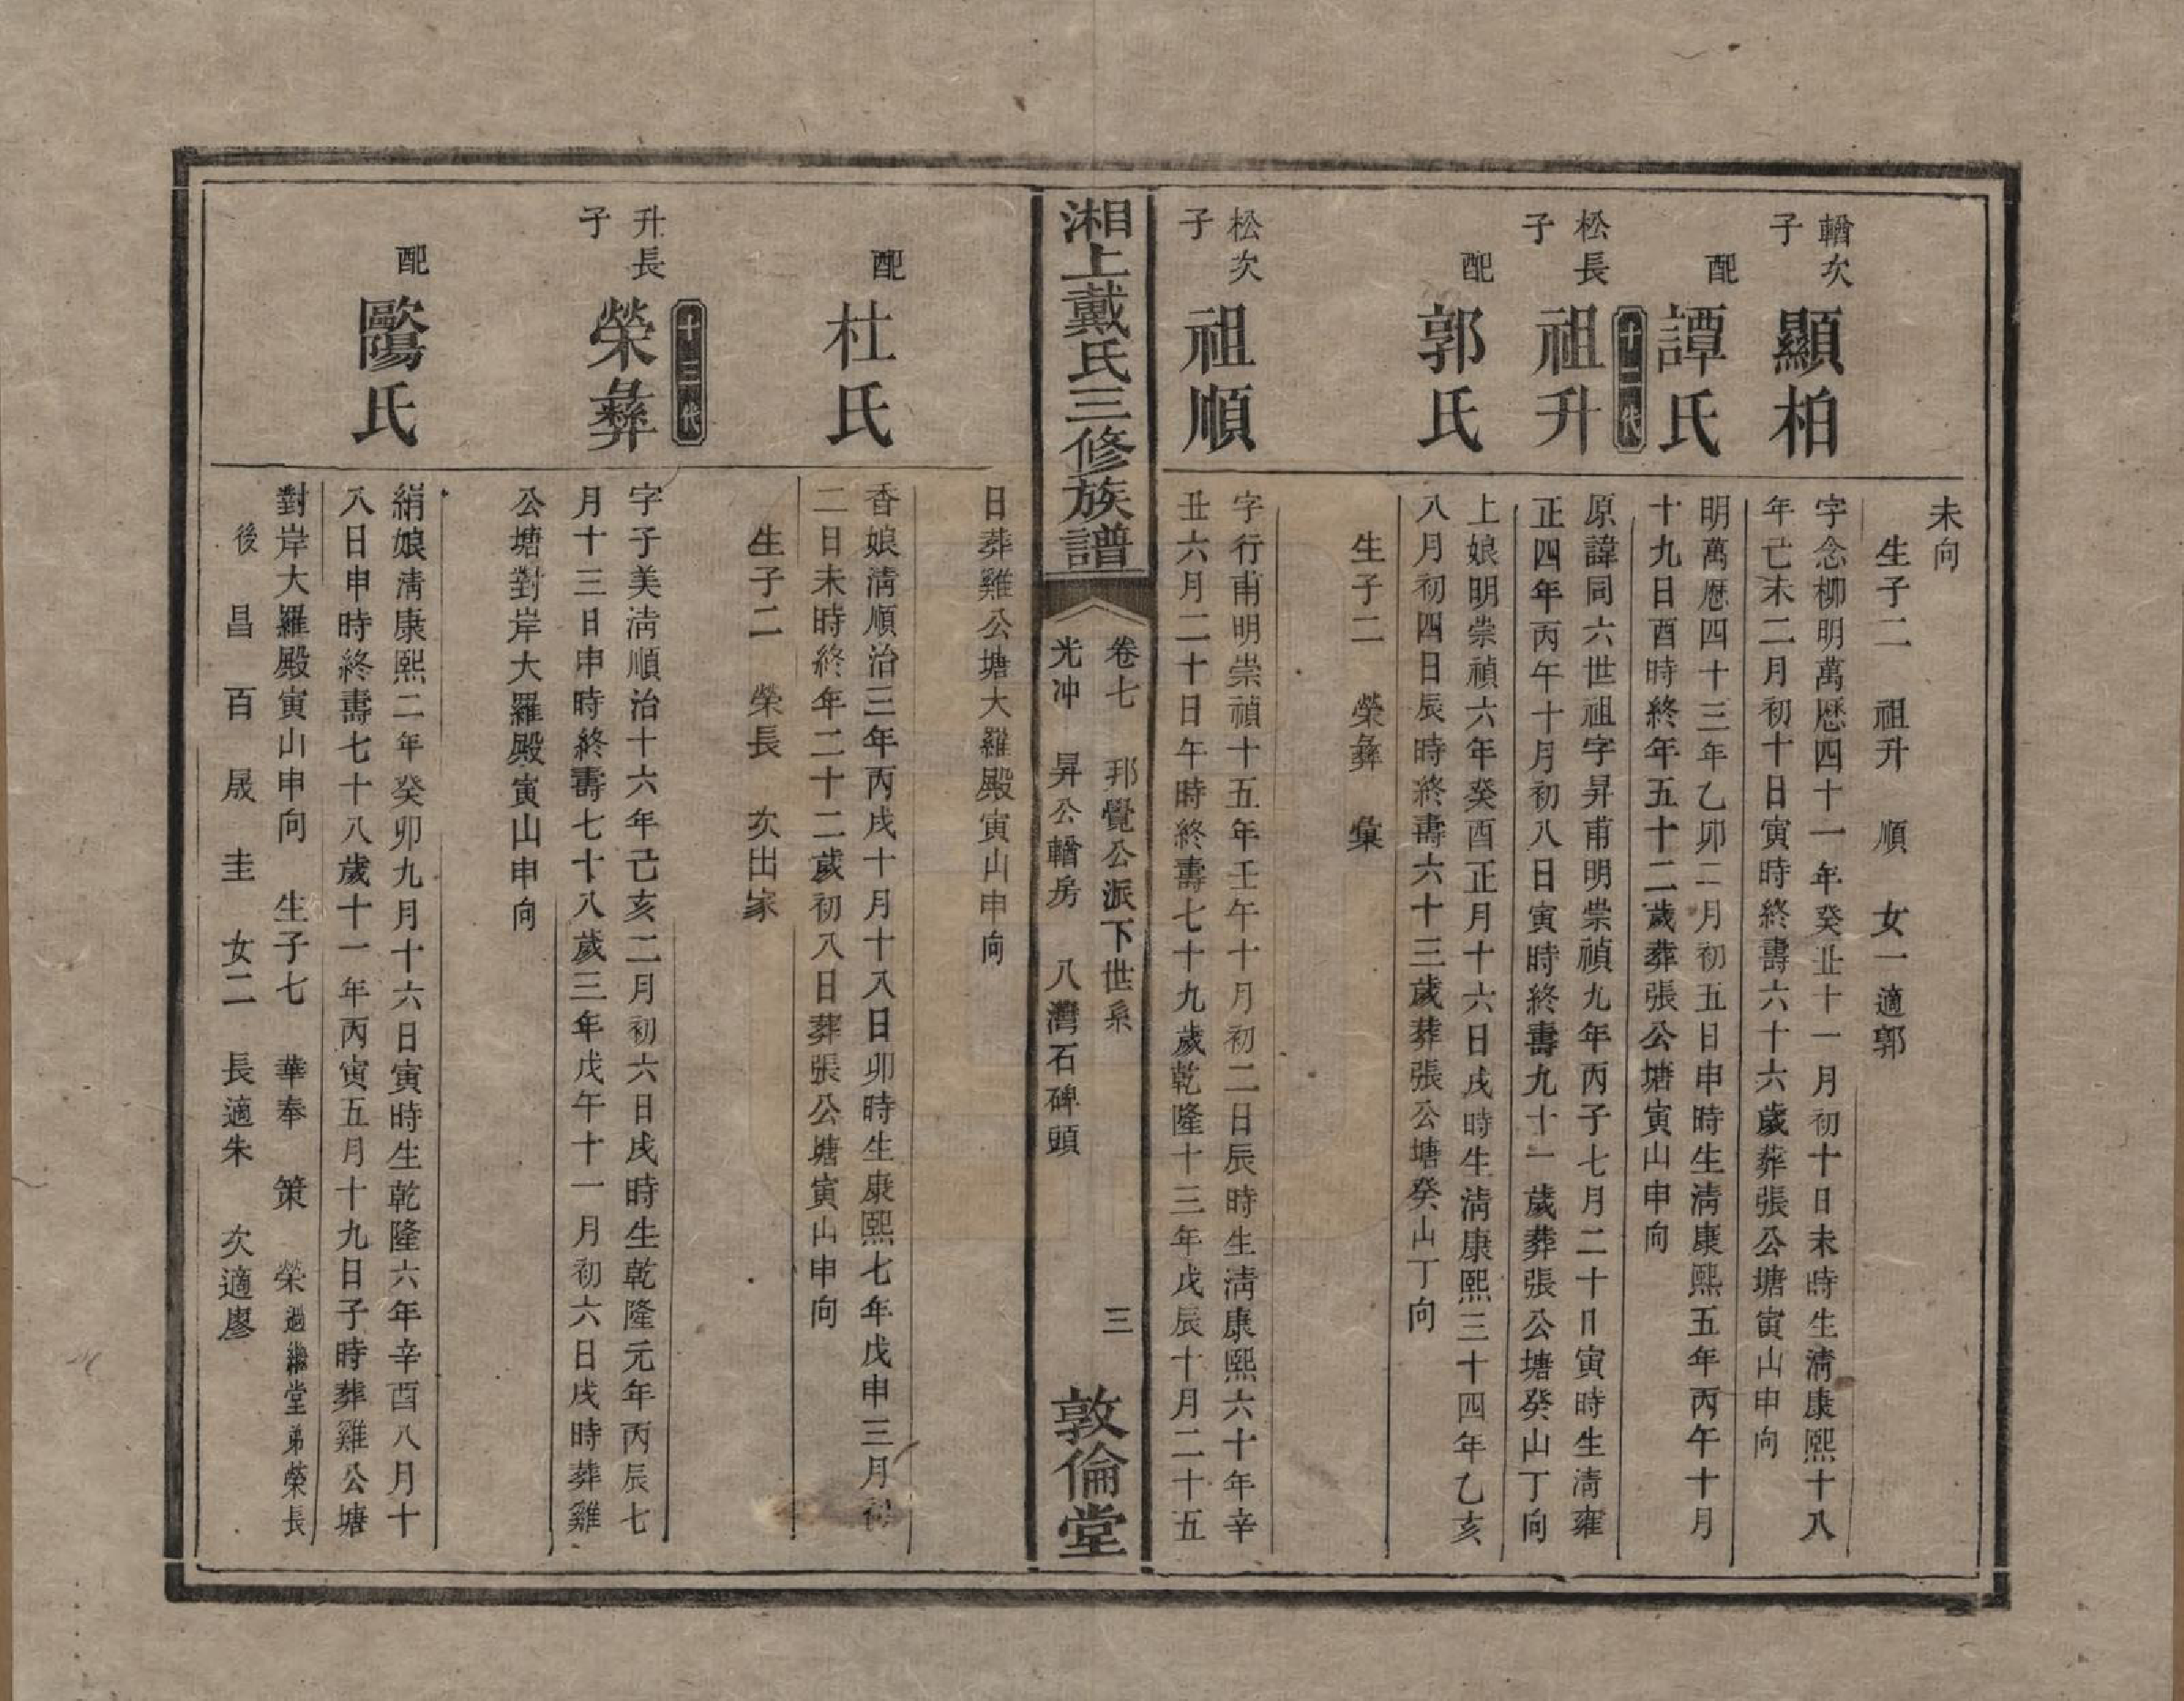 未向
生子二　祖升　順　女一適郭
輶次子
顯柏
字念柳明萬歷四十一年癸丑十一月初十日未時生清康熙十八
年己未二月初十日寅時終壽六十六歲葬張公塘寅山申向
配
譚氏
明萬歷四十三年乙卯二月初五日申時生清康熙五年丙午十月
十九日酉時終年五十二歲葬張公塘寅山申向
十二代
松長子
祖升
原諱同六世祖字昇甫明崇禎九年丙子七月二十日寅時生清雍
正四年丙午十月初八日寅時終壽九十一歲葬張公塘癸山丁向
配
郭氏
上娘明崇禎六年癸酉正月十六日戌時生清康熙三十四年乙亥
八月初四日辰時終壽六十三歲葬張公塘癸山丁向
生子二　榮彝　彙
松次子
祖順
字行甫明崇禎十五年壬午十月初二日辰時生清康熙六十年辛
丑六月二十日午時終壽七十九歲乾隆十三年戊辰十月二十五
湘上戴氏三修族譜
卷七　邦覺公派下世系　三
光冲　昇公輶房　八灣石碑頭
敦倫堂
日葬雞公塘大羅殿寅山申向
配
杜氏
香娘清順治三年丙戌十月十八日卯時生康熙七年戊申三月初
二日未時終年二十二歲初八日葬張公塘寅山申向
生子二　榮長　次出家
十三代
升長子
榮彝
字子美清順治十六年己亥二月初六日戌時生乾隆元年丙辰七
月十三日申時終壽七十八歲三年戊午十一月初六日戌時葬雞
公塘對岸大羅殿寅山申向
配
歐陽氏
絹娘清康熙二年癸卯九月十六日寅時生乾隆六年辛酉八月十
八日申時終壽七十八歲十一年丙寅五月十九日子時葬雞公塘
對岸大羅殿寅山申向　生子七　華奉　策　榮過繼堂弟榮長
後　昌　百　晟　圭　女二　長適朱　次適廖